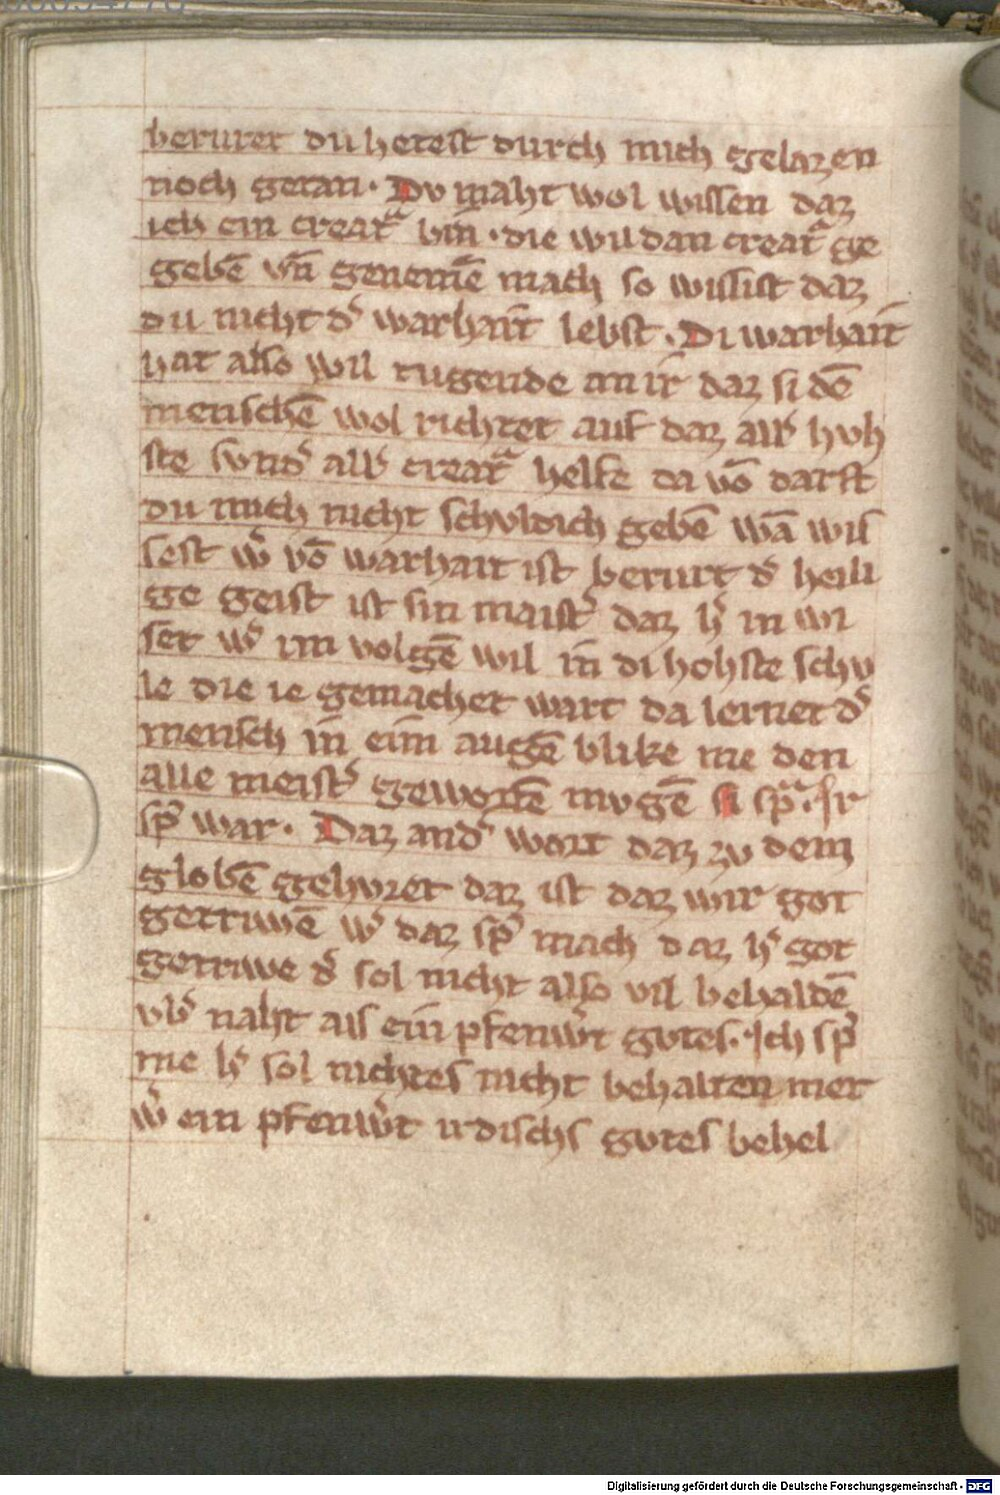 beruret du hetest durch mich gelazen
noch getan. Dv maht wol wissen daz
ich ein creatᷓ bin. die wil dan creatᷓ ge
gebē vn̄ genemē mach so wissist daz
du nicht dˢ warhait̄ lebst. Di warhait̄
hat also wil tugende an ir̄ daz si dē
menschē wol richtet auf daz allˢ hvh
ste svndˢ allˢ creatᷓ helfe da vō darft
du mich nicht schvldich gebē wā wis
sest wˢ vō warhait ist berurt dˢ heili
ge geist ist sin maistˢ daz hˢ in wi
set wˢ im volgē wil in̄ di hohste schv
le die ie gemachet wart da lernet dˢ
mensch in̄ eim augē blike me den
alle meistˢ geworfē mvgē si spᷓ. Ir
spˢ war. Daz andˢ wort daz zv dem
globē gehvret daz ist daz wir got
getruwē wˢ daz spˢ mach daz hˢ got
getruwe dˢ sol nicht also vil behaldē
vbˢ naht als ein pfenwˢt gvtes. Ich spˢ
me hˢ sol nichtes nicht behalten mer
wˢ ein pfenwˢt irdischs gvtes behel
Digitalisierung gefördert durch die Deutsche Forschungsgemeinschaft - DFG